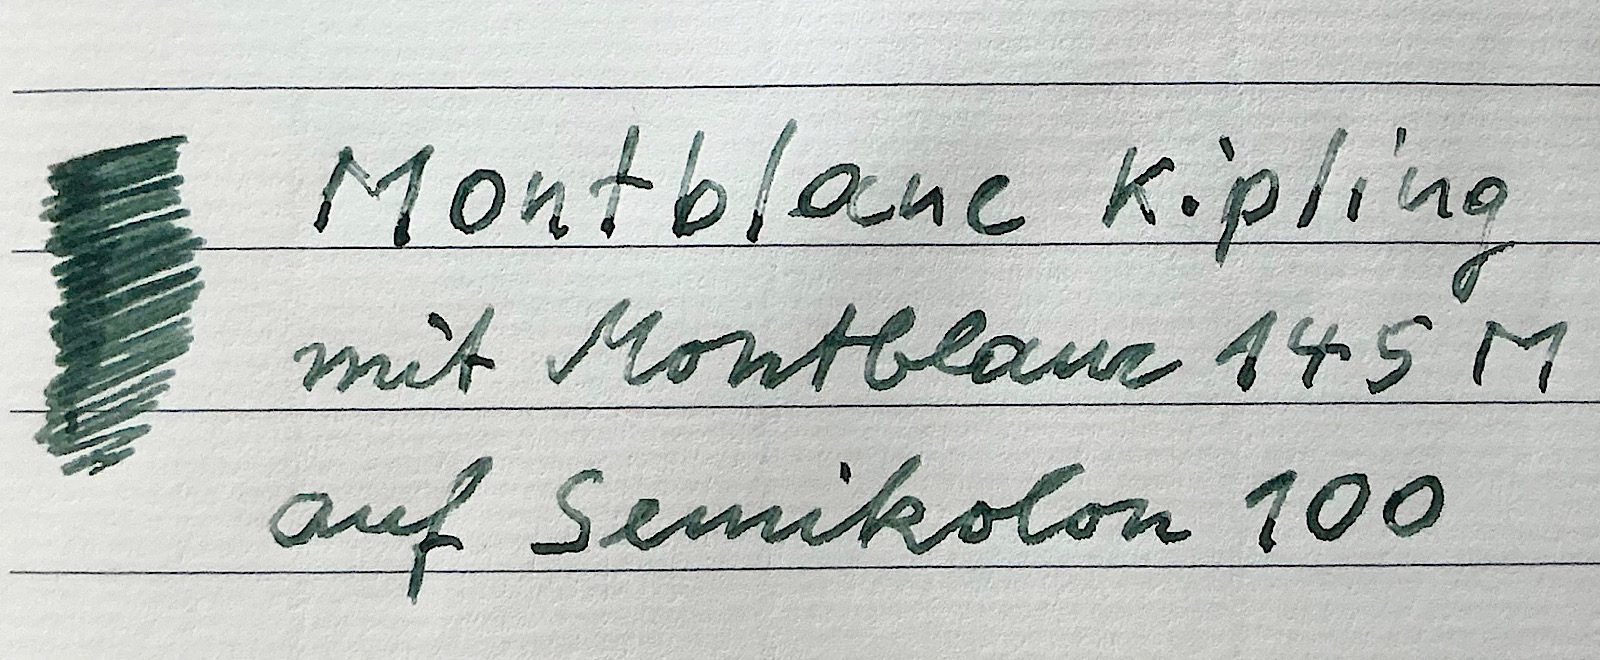 Montblanc Kipling
mit Montblanc 145 M
auf Semikolon 100